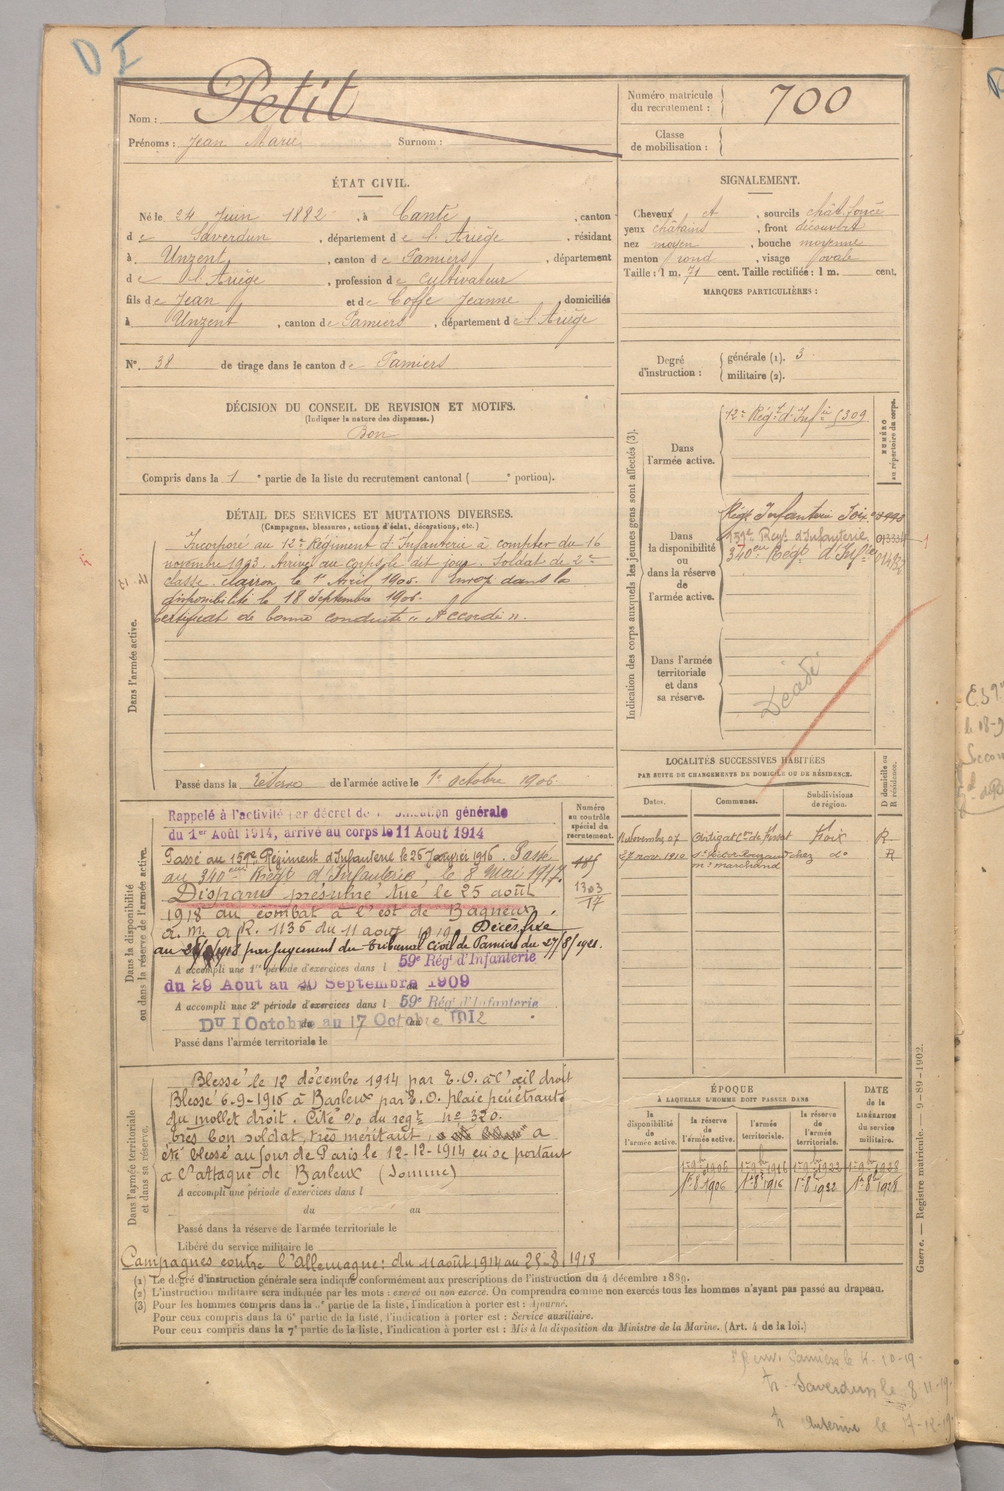 DI
Nom : Petit
Prénoms : Jean Marie Surnom :
Numéro matricule du recrutement : 700
Classe de mobilisation :
ÉTAT CIVIL.
Né le 24 Juin 1882, à Canté, canton
de Saverdun, département de l'Ariège, résidant
à Unzent, canton de Pamiers, département
de l'Ariège, profession de cultivateur
fils de Jean et de Coffe Jeanne domiciliés
à Unzent, canton de Pamiers, département de l'Ariège
N° 38 de tirage dans le canton de Pamiers
DÉCISION DU CONSEIL DE REVISION ET MOTIFS.
(Indiquer la nature des dispenses.)
Bon
Compris dans la 1e partie de la liste du recrutement cantonal ( e portion).
SIGNALEMENT.
Cheveux et, sourcils chât. foncé
yeux châtains, front découvert
nez moyen, bouche moyenne
menton rond, visage ovale
Taille : 1 m. 71 cent. Taille rectifiée : 1 m. cent.
MARQUES PARTICULIÈRES :
Degré d'instruction : générale (1). 3
militaire (2).
DÉTAIL DES SERVICES ET MUTATIONS DIVERSES.
(Campagnes, blessures, actions d'éclat, décorations, etc.)
Dans l'armée active.
Incorporé au 12e Régiment d'Infanterie à compter du 16
novembre 1903. Arrivé au corps le dit jour. Soldat de 2e
classe. clairon le 1er Avril 1905. Envoi dans la
disponibilité le 18 Septembre 1906.
Certificat de bonne conduite « Accordé ».
Passé dans la réserve de l'armée active le 1er octobre 1906
Indication des corps auxquels les jeunes gens sont affectés (3).
Dans l'armée active.
12e Régt d'Infie 1309
NUMÉRO au répertoire du corps.
Dans la disponibilité ou dans la réserve de l'armée active.
Régt Infanterie Foix
159e Régt d'Infanterie
340eme Régt d'Infie
Dans l'armée territoriale et dans sa réserve.
Décédé
LOCALITÉS SUCCESSIVES HABITÉES
PAR SUITE DE CHANGEMENTS DE DOMICILE OU DE RÉSIDENCE.
Dates. Communes. Subdivisions de région. D domicile ou R résidence.
Novemb 07 Artigat Foix R
27 nov. 1910 chez do R
Marchand
Dans la disponibilité ou dans la réserve de l'armée active.
Numéro au contrôle spécial du recrutement.
Rappelé à l'activité par décret de mobilisation générale
du 1er Août 1914, arrivé au corps le 11 Août 1914
Passé au 159e Régiment d'Infanterie le 26 Janvier 1916. Passé
au 340eme Régt d'Infanterie le 8 Mai 1917.
Disparu présumé tué le 25 août
1918 au combat à l'est de Bagneux,
a. m. a K. 1136 du 11 août 1919. Décès fixé
au 25/8/1918 par jugement du Tribunal Civil de Pamiers du 27/8/1921.
1303
17
A accompli une 1re période d'exercices dans l 59e Rég. d'Infanterie
du 29 Aout au 20 Septembre 1909
A accompli une 2e période d'exercices dans l 59e Rég. d'Infanterie
Du 1 Octobre au 17 Octobre 1912
Passé dans l'armée territoriale le
Dans l'armée territoriale et dans sa réserve.
Blessé le 12 décembre 1914 par E. O. à l'œil droit
Blessé 6-9-1916 à Barleux par E. O. plaie pénétrante
du mollet droit. Cité % du regt n° 320.
très bon soldat, très méritant, a
été blessé au four de Paris le 12-12-1914 en se portant
à l'attaque de Barleux (Somme)
A accompli une période d'exercices dans l
du au
Passé dans la réserve de l'armée territoriale le
Libéré du service militaire le
Campagnes contre l'Allemagne : du 11 août 1914 au 25-8-1918
ÉPOQUE
À LAQUELLE L'HOMME DOIT PASSER DANS
la disponibilité de l'armée active. la réserve de l'armée active. l'armée territoriale. la réserve de l'armée territoriale.
DATE de la LIBÉRATION du service militaire.
1er 8bre 1906 1er 8bre 1916 1er 8bre 1922 1er 8bre 1928
(1) Le degré d'instruction générale sera indiqué conformément aux prescriptions de l'instruction du 4 décembre 1889.
(2) L'instruction militaire sera indiquée par les mots : exercé ou non exercé. On comprendra comme non exercés tous les hommes n'ayant pas passé au drapeau.
(3) Pour les hommes compris dans la 5e partie de la liste, l'indication à porter est : Ajourné.
Pour ceux compris dans la 6e partie de la liste, l'indication à porter est : Service auxiliaire.
Pour ceux compris dans la 7e partie de la liste, l'indication à porter est : Mis à la disposition du Ministre de la Marine. (Art. 4 de la loi.)
Guerre. — Registre matricule — 9-89-1902.
Pamiers le 4-10-19
Saverdun le 8 11-19
le 7-12-19